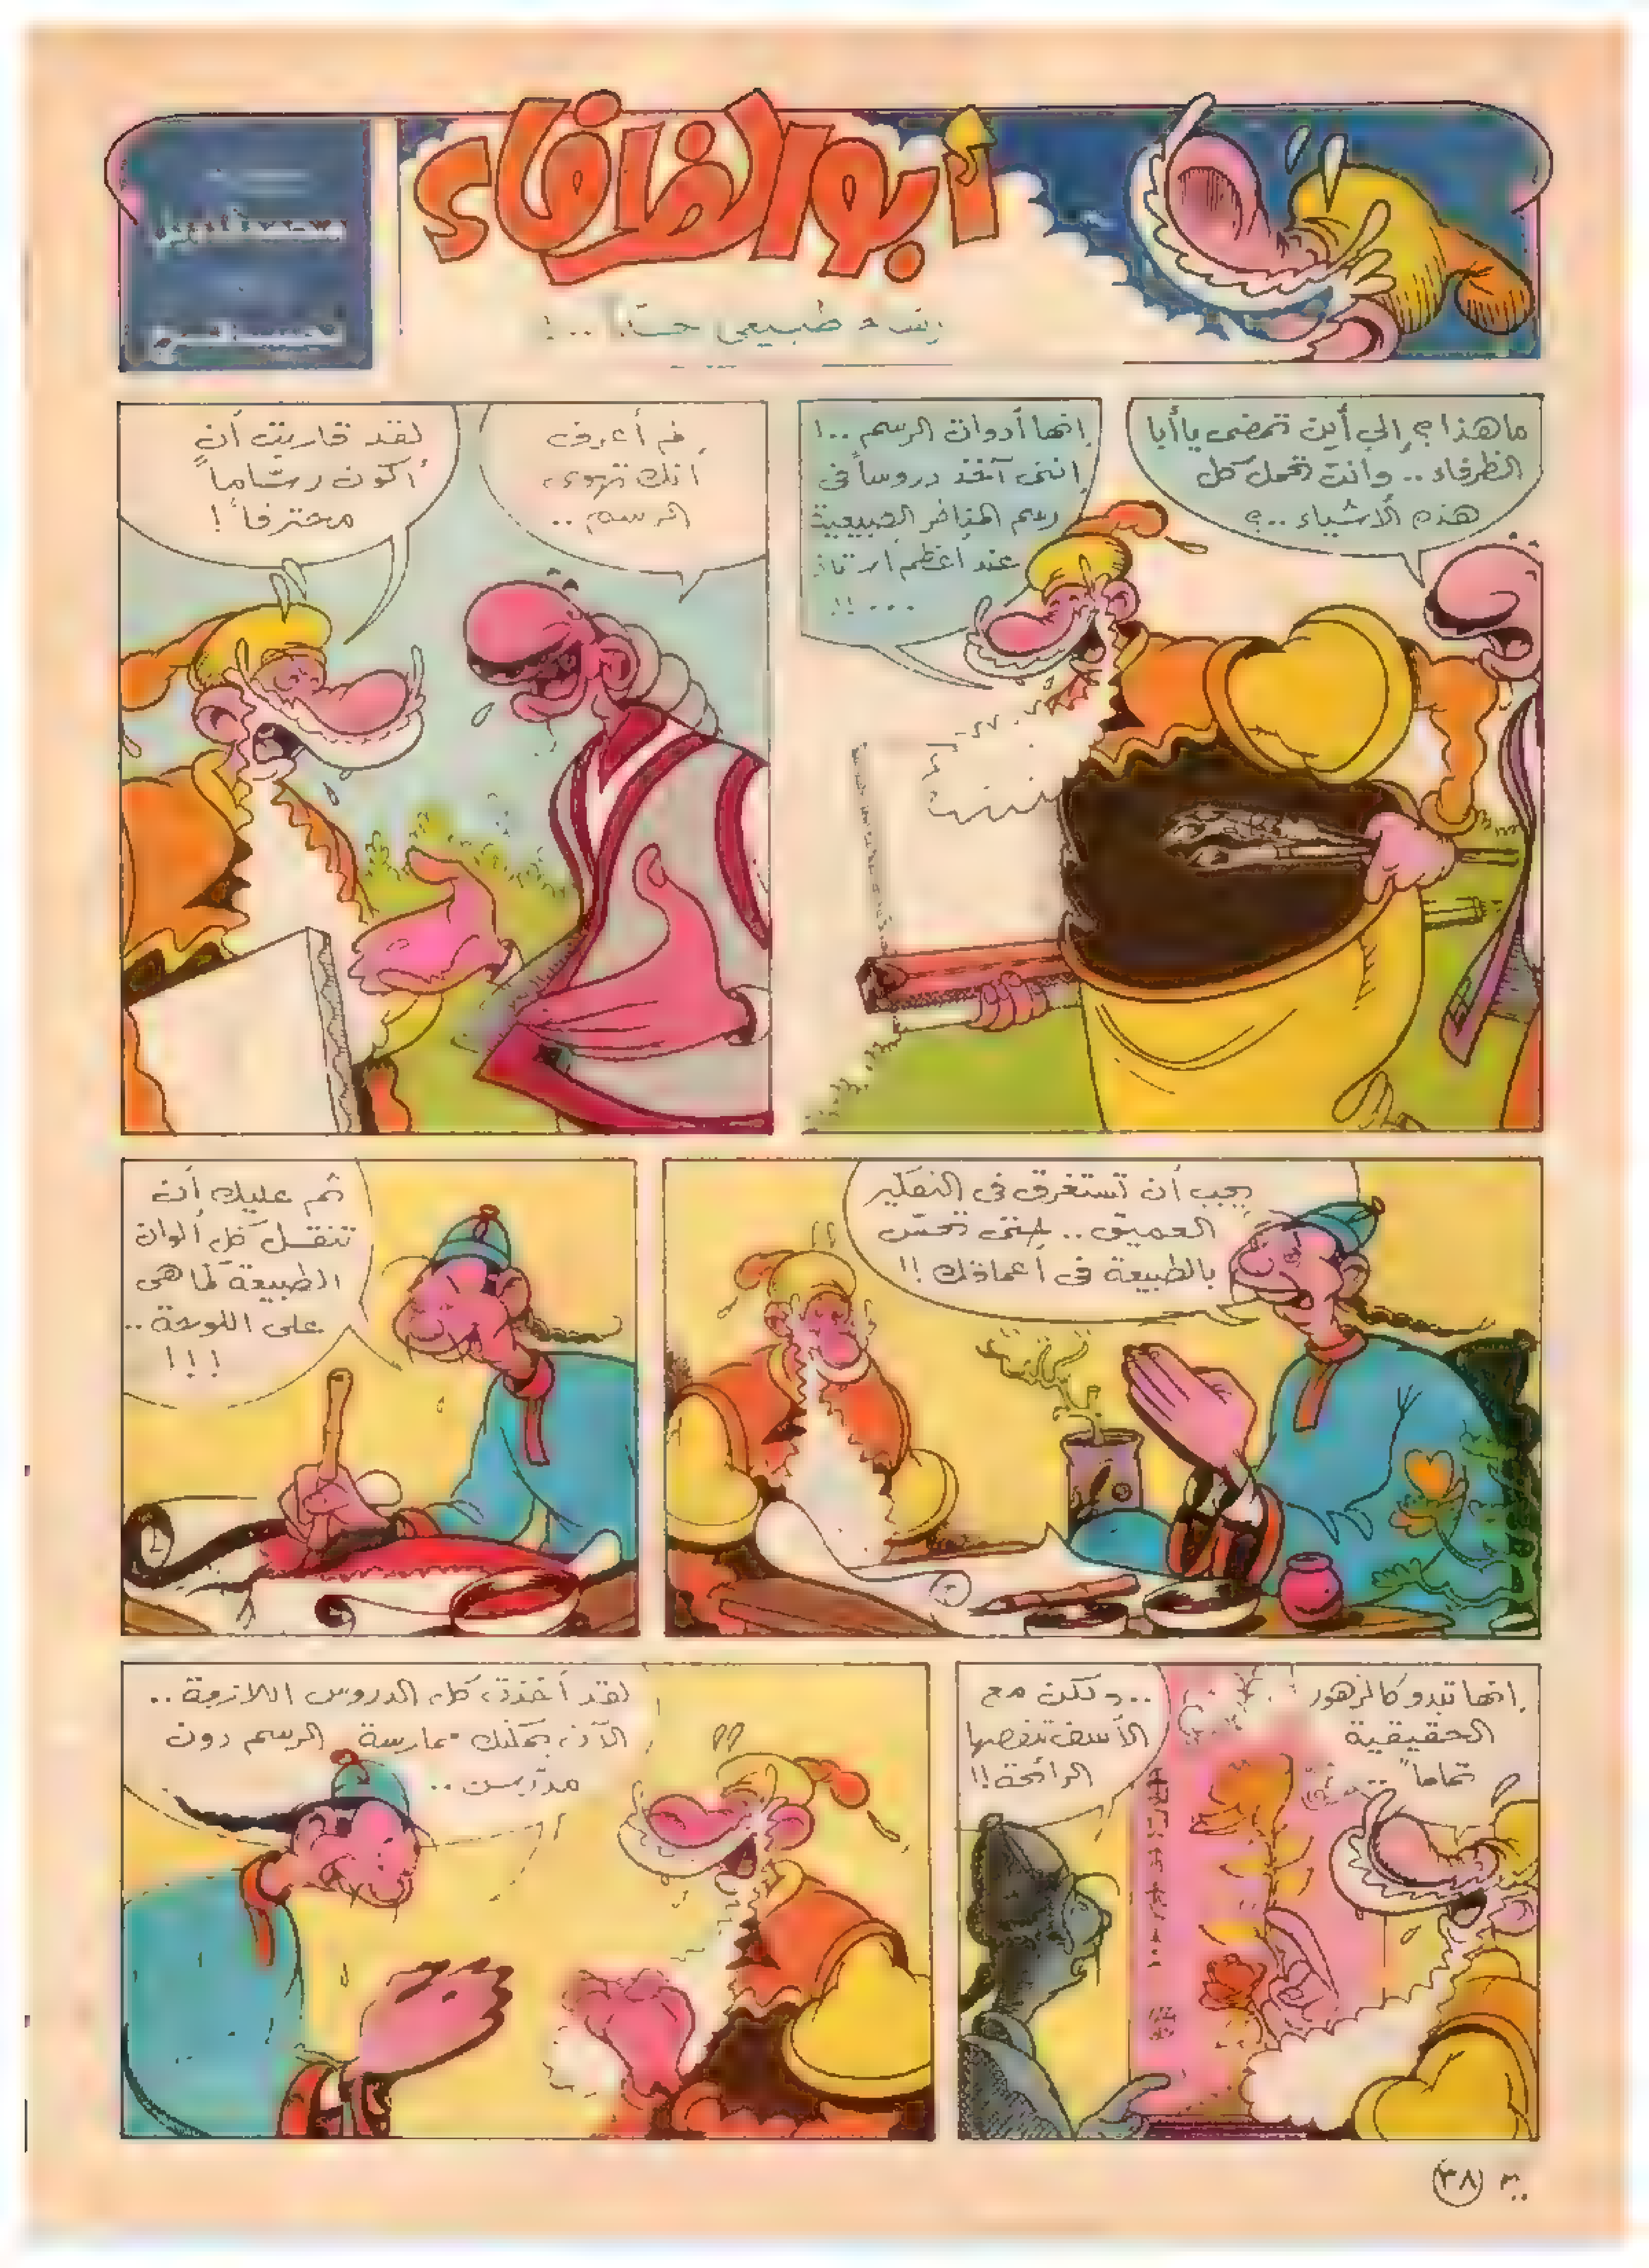 أبو الظرفاء
طبيعي
ما هذا؟ إلى أين تمضى يا أبا
الظرفاء.. وأنت تحمل كل
هذه الأشياء..؟
إنها أدوات الرسم..!
إننى آخذ دروساً فى
رسم المناظر الطبيعية
عند أعظم
...!!
لم أعرف
أنك تهوى
الرسم..
لقد قاربت أن
أكون رساماً
محترفاً!
يجب أن تستغرق فى التفكير
العميق.. حتى تحس
بالطبيعة فى أعماقك!!
ثم عليك أن
تنقل كل ألوان
الطبيعة كما هى
على اللوحة..
!!!
إنها تبدو كالزهور
الحقيقية
تماماً..
..ولكن مع
الأسف تنقصها
الرائحة!!
لقد أخذت كل الدروس اللازمة..
الآن يمكنك ممارسة الرسم دون
مدرس..
٣٨